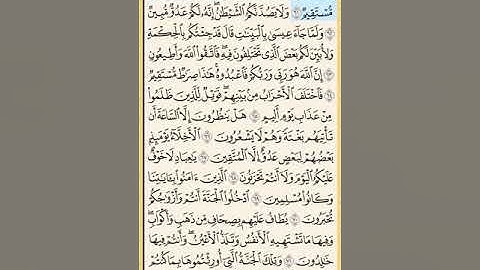 مُّسْتَقِيمٌ ٦١ وَلَا يَصُدَّنَّكُمُ الشَّيْطَٰنُ إِنَّهُ لَكُمْ عَدُوٌّ مُّبِينٌ
٦٢ وَلَمَّا جَآءَ عِيسَىٰ بِالْبَيِّنَٰتِ قَالَ قَدْ جِئْتُكُم بِالْحِكْمَةِ
وَلِأُبَيِّنَ لَكُم بَعْضَ الَّذِي تَخْتَلِفُونَ فِيهِ فَاتَّقُوا اللَّهَ وَأَطِيعُونِ
٦٣ إِنَّ اللَّهَ هُوَ رَبِّي وَرَبُّكُمْ فَاعْبُدُوهُ هَٰذَا صِرَٰطٌ مُّسْتَقِيمٌ
٦٤ فَاخْتَلَفَ الْأَحْزَابُ مِنۢ بَيْنِهِمْ فَوَيْلٌ لِّلَّذِينَ ظَلَمُوا
مِنْ عَذَابِ يَوْمٍ أَلِيمٍ ٦٥ هَلْ يَنظُرُونَ إِلَّا السَّاعَةَ أَن
تَأْتِيَهُم بَغْتَةً وَهُمْ لَا يَشْعُرُونَ ٦٦ الْأَخِلَّآءُ يَوْمَئِذٍۭ
بَعْضُهُمْ لِبَعْضٍ عَدُوٌّ إِلَّا الْمُتَّقِينَ ٦٧ يَٰعِبَادِ لَا خَوْفٌ
عَلَيْكُمُ الْيَوْمَ وَلَآ أَنتُمْ تَحْزَنُونَ ٦٨ الَّذِينَ ءَامَنُوا بِـَٔايَٰتِنَا
وَكَانُوا مُسْلِمِينَ ٦٩ ادْخُلُوا الْجَنَّةَ أَنتُمْ وَأَزْوَٰجُكُمْ
تُحْبَرُونَ ٧٠ يُطَافُ عَلَيْهِم بِصِحَافٍ مِّن ذَهَبٍ وَأَكْوَابٍ
وَفِيهَا مَا تَشْتَهِيهِ الْأَنفُسُ وَتَلَذُّ الْأَعْيُنُ وَأَنتُمْ فِيهَا
خَٰلِدُونَ ٧١ وَتِلْكَ الْجَنَّةُ الَّتِيٓ أُورِثْتُمُوهَا بِمَا كُنتُمْ